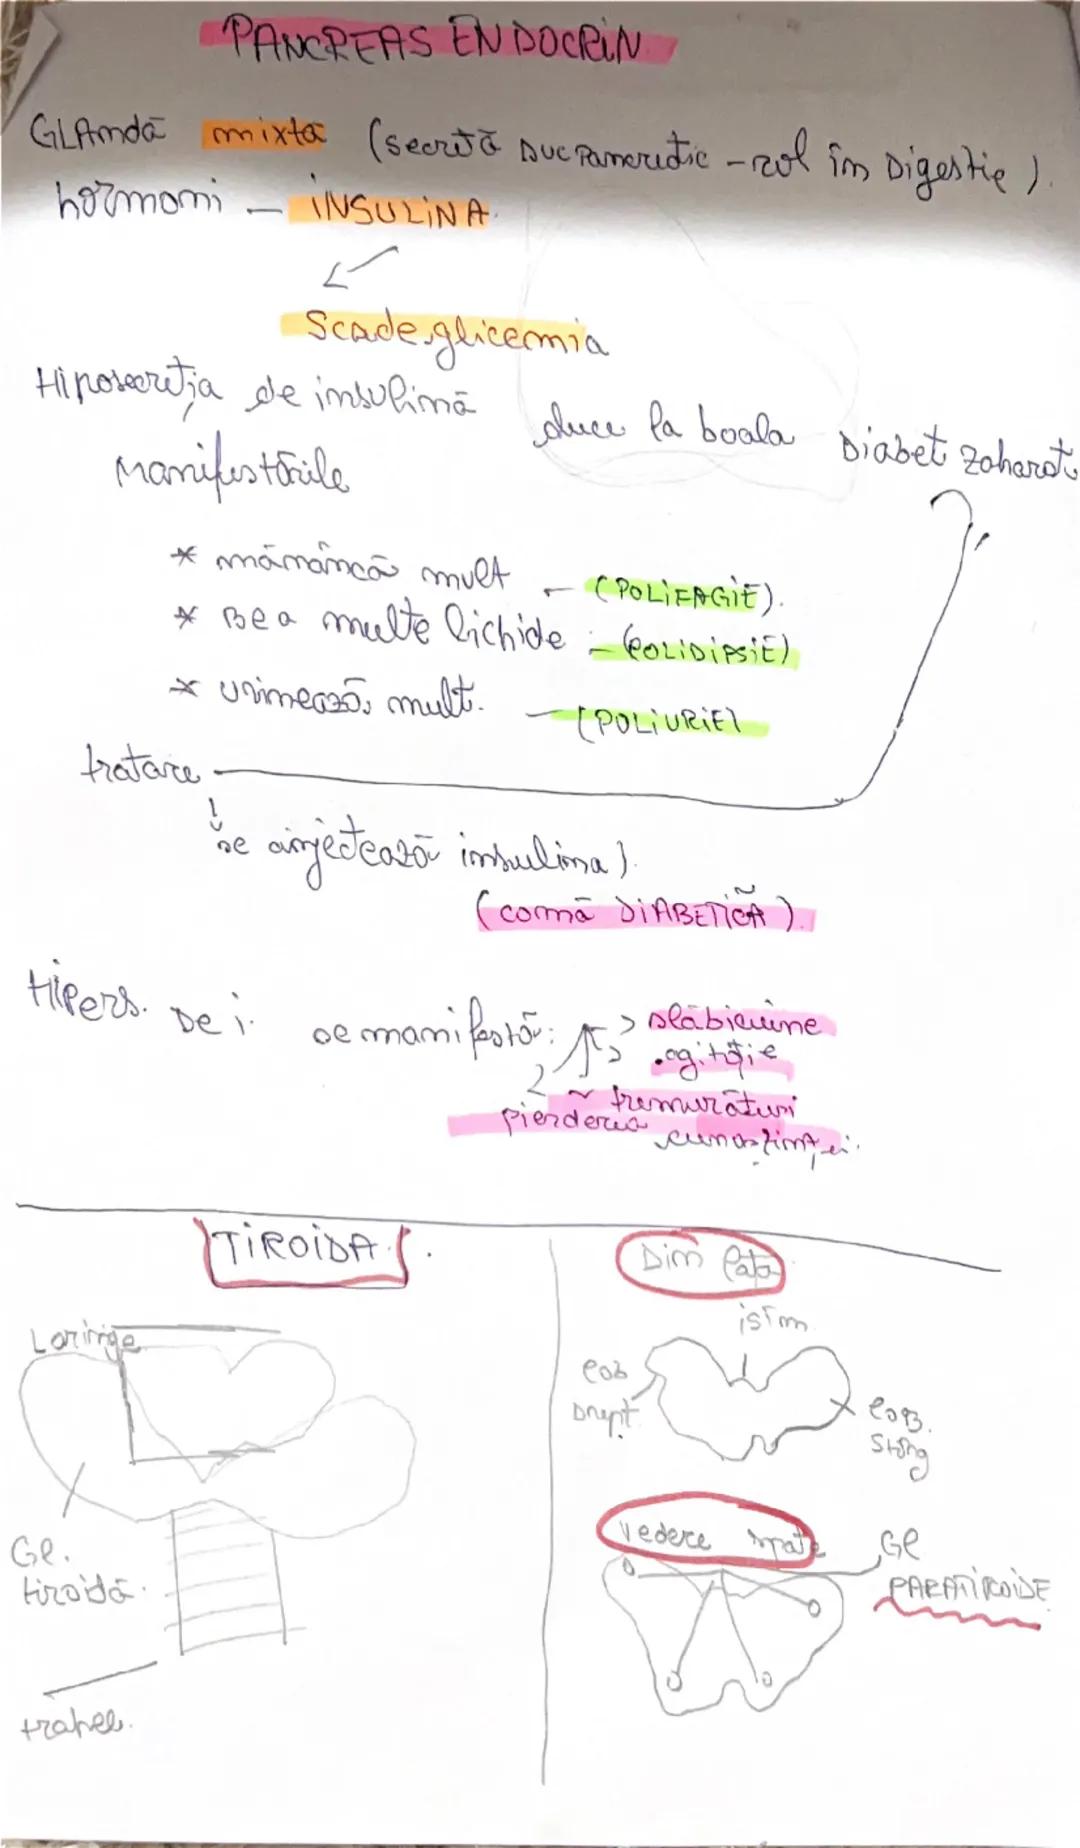 PANCREAS ENDOCRIN
GLAndă mixtă (secretă suc Pancreatic - rol în Digestie).
hormoni - INSULINA.
Scade glicemia
Hiposecreția de insulină duce la boala Diabet zaharat
Manifestările
* mănâncă mult - (POLIFAGIE).
* Bea multe lichide - (POLIDIPSIE)
* urinează mult. - (POLIURIE)
tratare
se injectează insulina).
(comă DIABETICĂ).
Hipers. De i. se manifestă: > slăbiciune
> .agitație
~ tremurături
pierderea cunoștinței.
TIROIDA.
Din fața
Laringe
istm
lob Drept.
lob. Stâng
Vedere spate
Gl PARATIROIDE
Gl. tiroidă.
trahee.